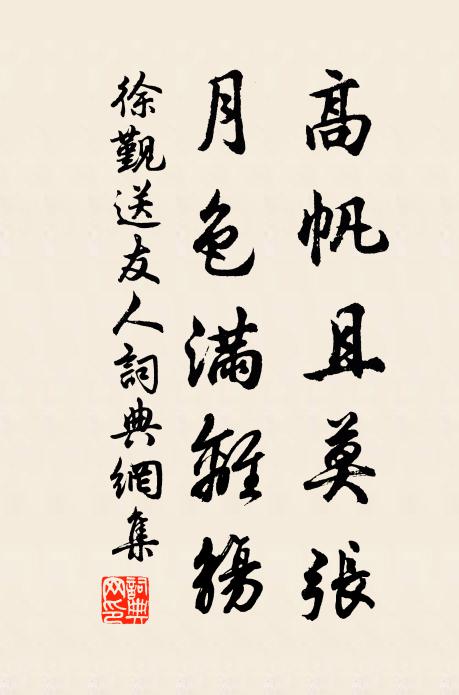 高帆且莫張
月色滿離觴
徐觀送友人詞典網集
詞典網印